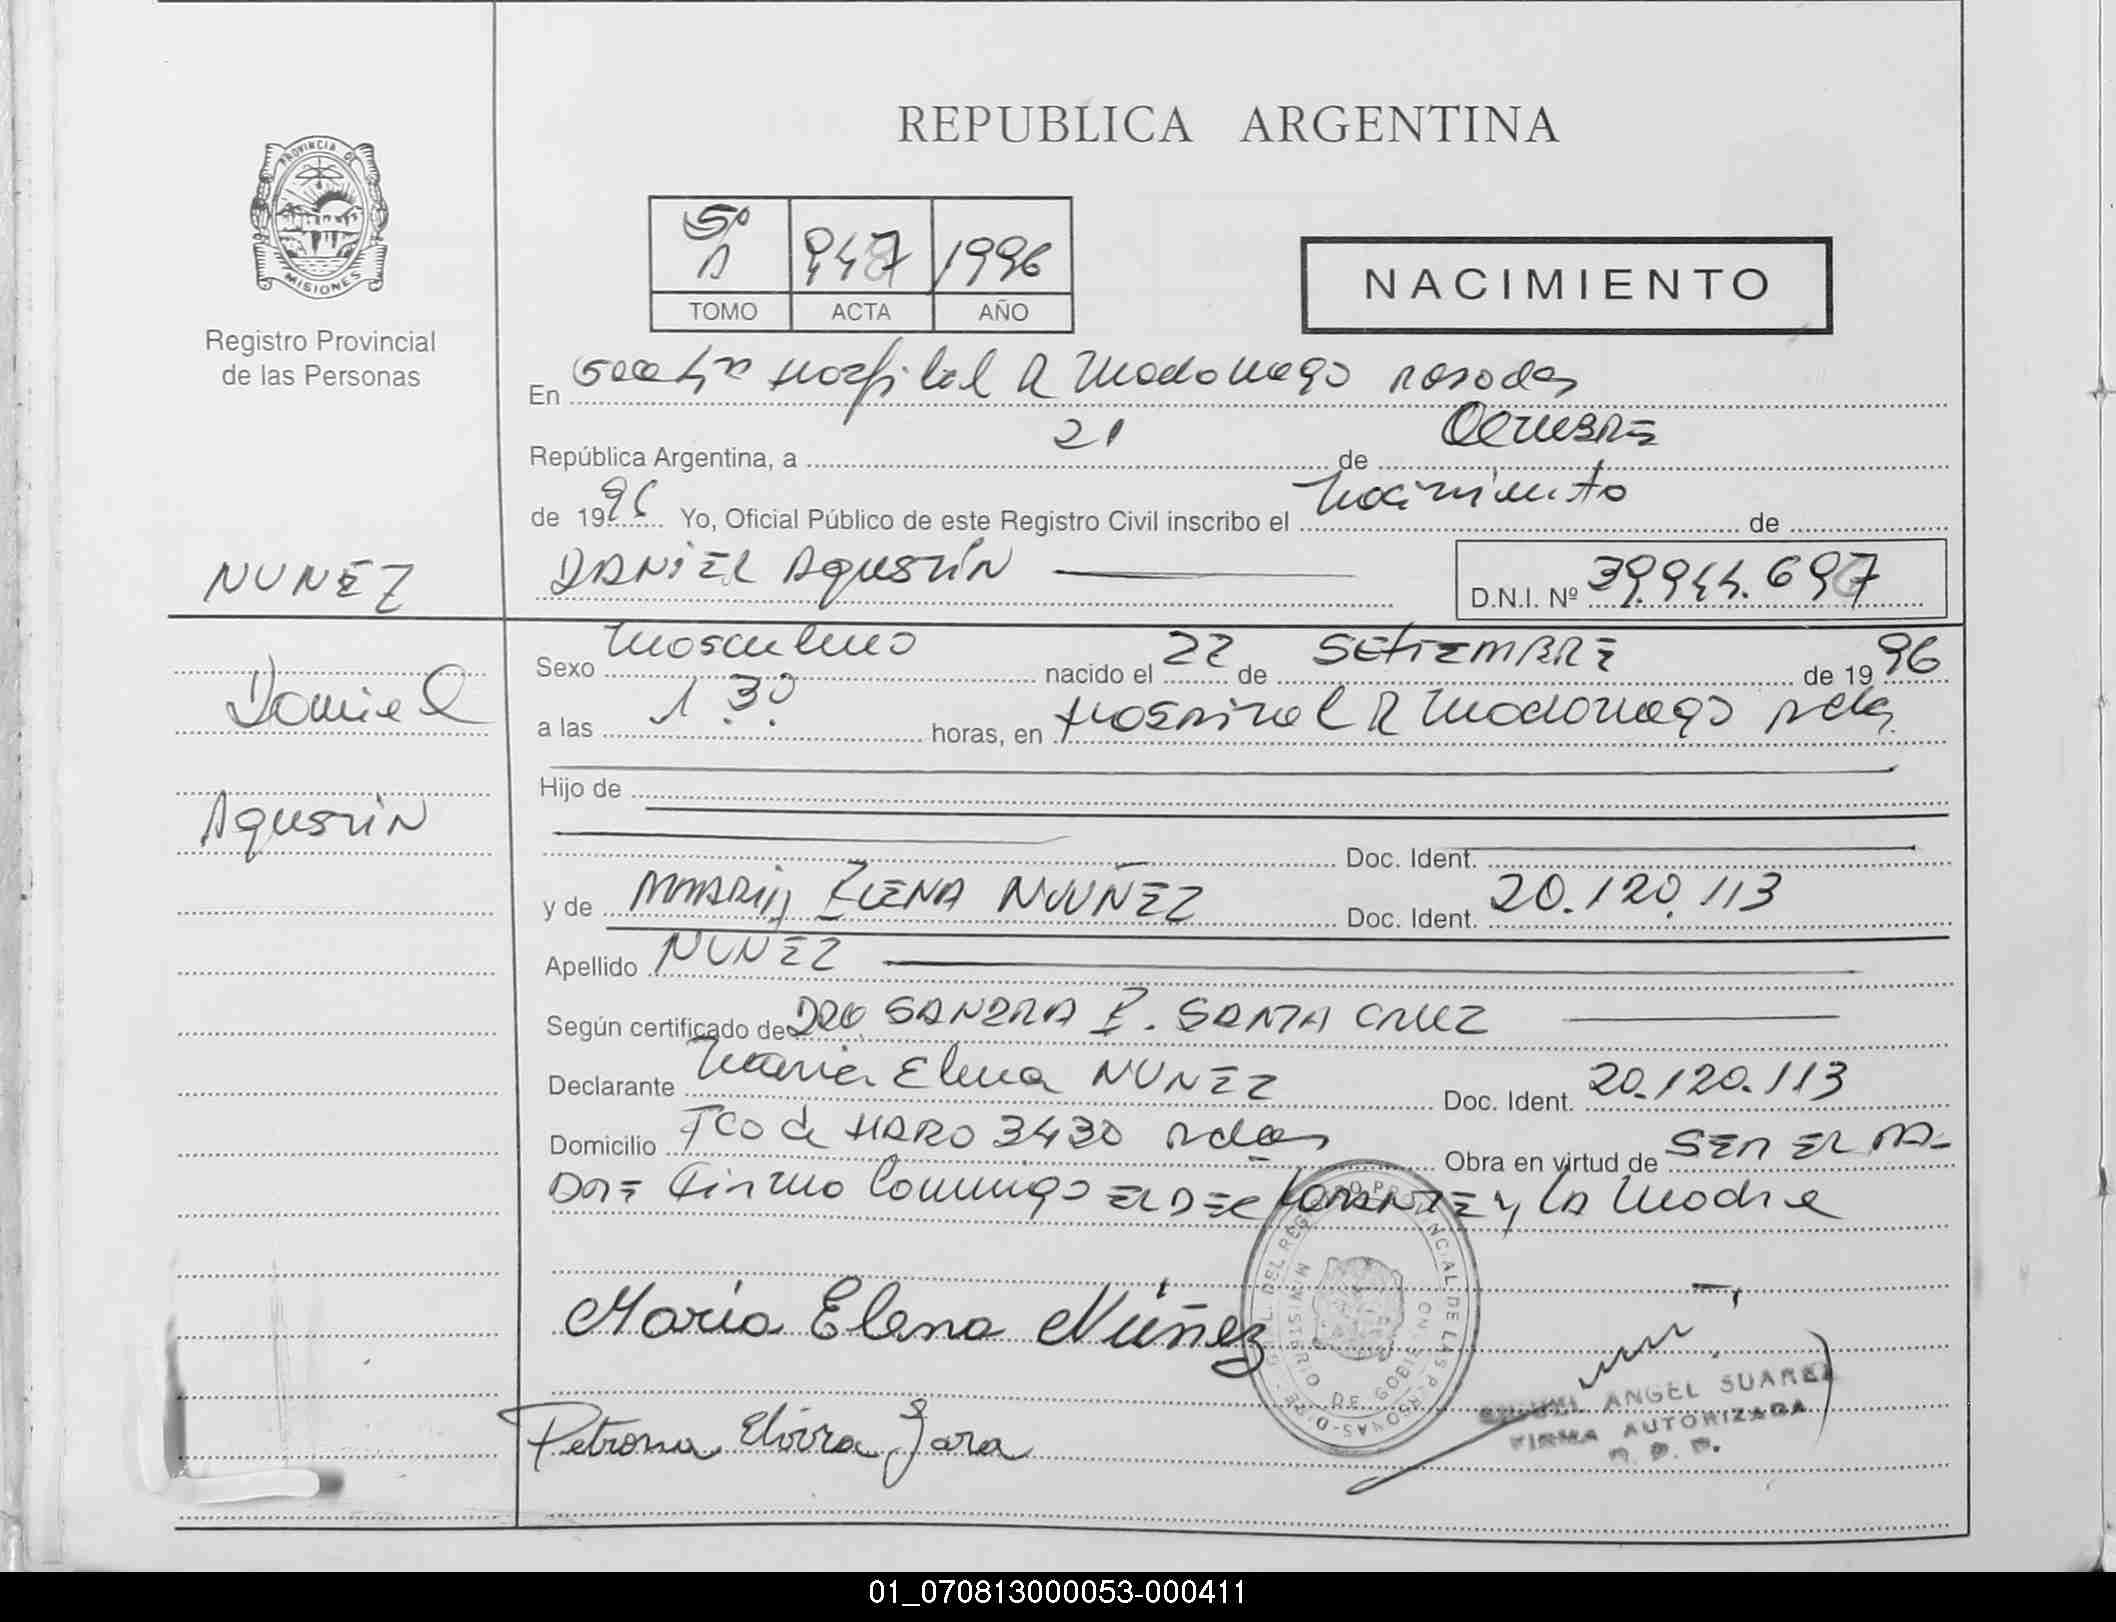 REPUBLICA ARGENTINA
PROVINCIA DE MISIONES
Registro Provincial
de las Personas
5º 947 1996
TOMO ACTA AÑO
NACIMIENTO
En Hospital R Madariaga Posadas
República Argentina, a 21 de OCTUBRE
de 1996 Yo, Oficial Público de este Registro Civil inscribo el Nacimiento de
NUÑEZ
DANIEL AGUSTIN
D.N.I. Nº 39.944.697
Daniel
Agustin
Sexo Masculino nacido el 22 de SETIEMBRE de 1996
a las 1 30 horas, en Hospital R Madariaga Pdas
Hijo de
Doc. Ident.
y de MARIA ELENA NUÑEZ Doc. Ident. 20.120.113
Apellido NUÑEZ
Según certificado de DRA SANDRA E. SANTA CRUZ
Declarante Maria Elena NUÑEZ Doc. Ident. 20.120.113
Domicilio Fco de HARO 3430 Pdas Obra en virtud de SER EL PA-
DRE Firma Conmigo EL DECLARANTE y la Madre
María Elena Núñez
Petrona Elvira Jara
DIRE. GRAL. DEL REGISTRO PROVINCIAL DE LAS PERSONAS
MINISTERIO DE GOBIERNO
MIGUEL ANGEL SUAREZ
FIRMA AUTORIZADA
01_070813000053-000411